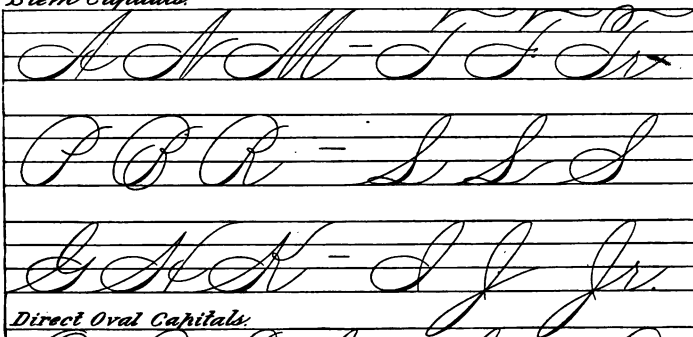 Stem Capitals.
A N M – T F Tr
P B R – L S S
G H K – I J Jr.
Direct Oval Capitals.